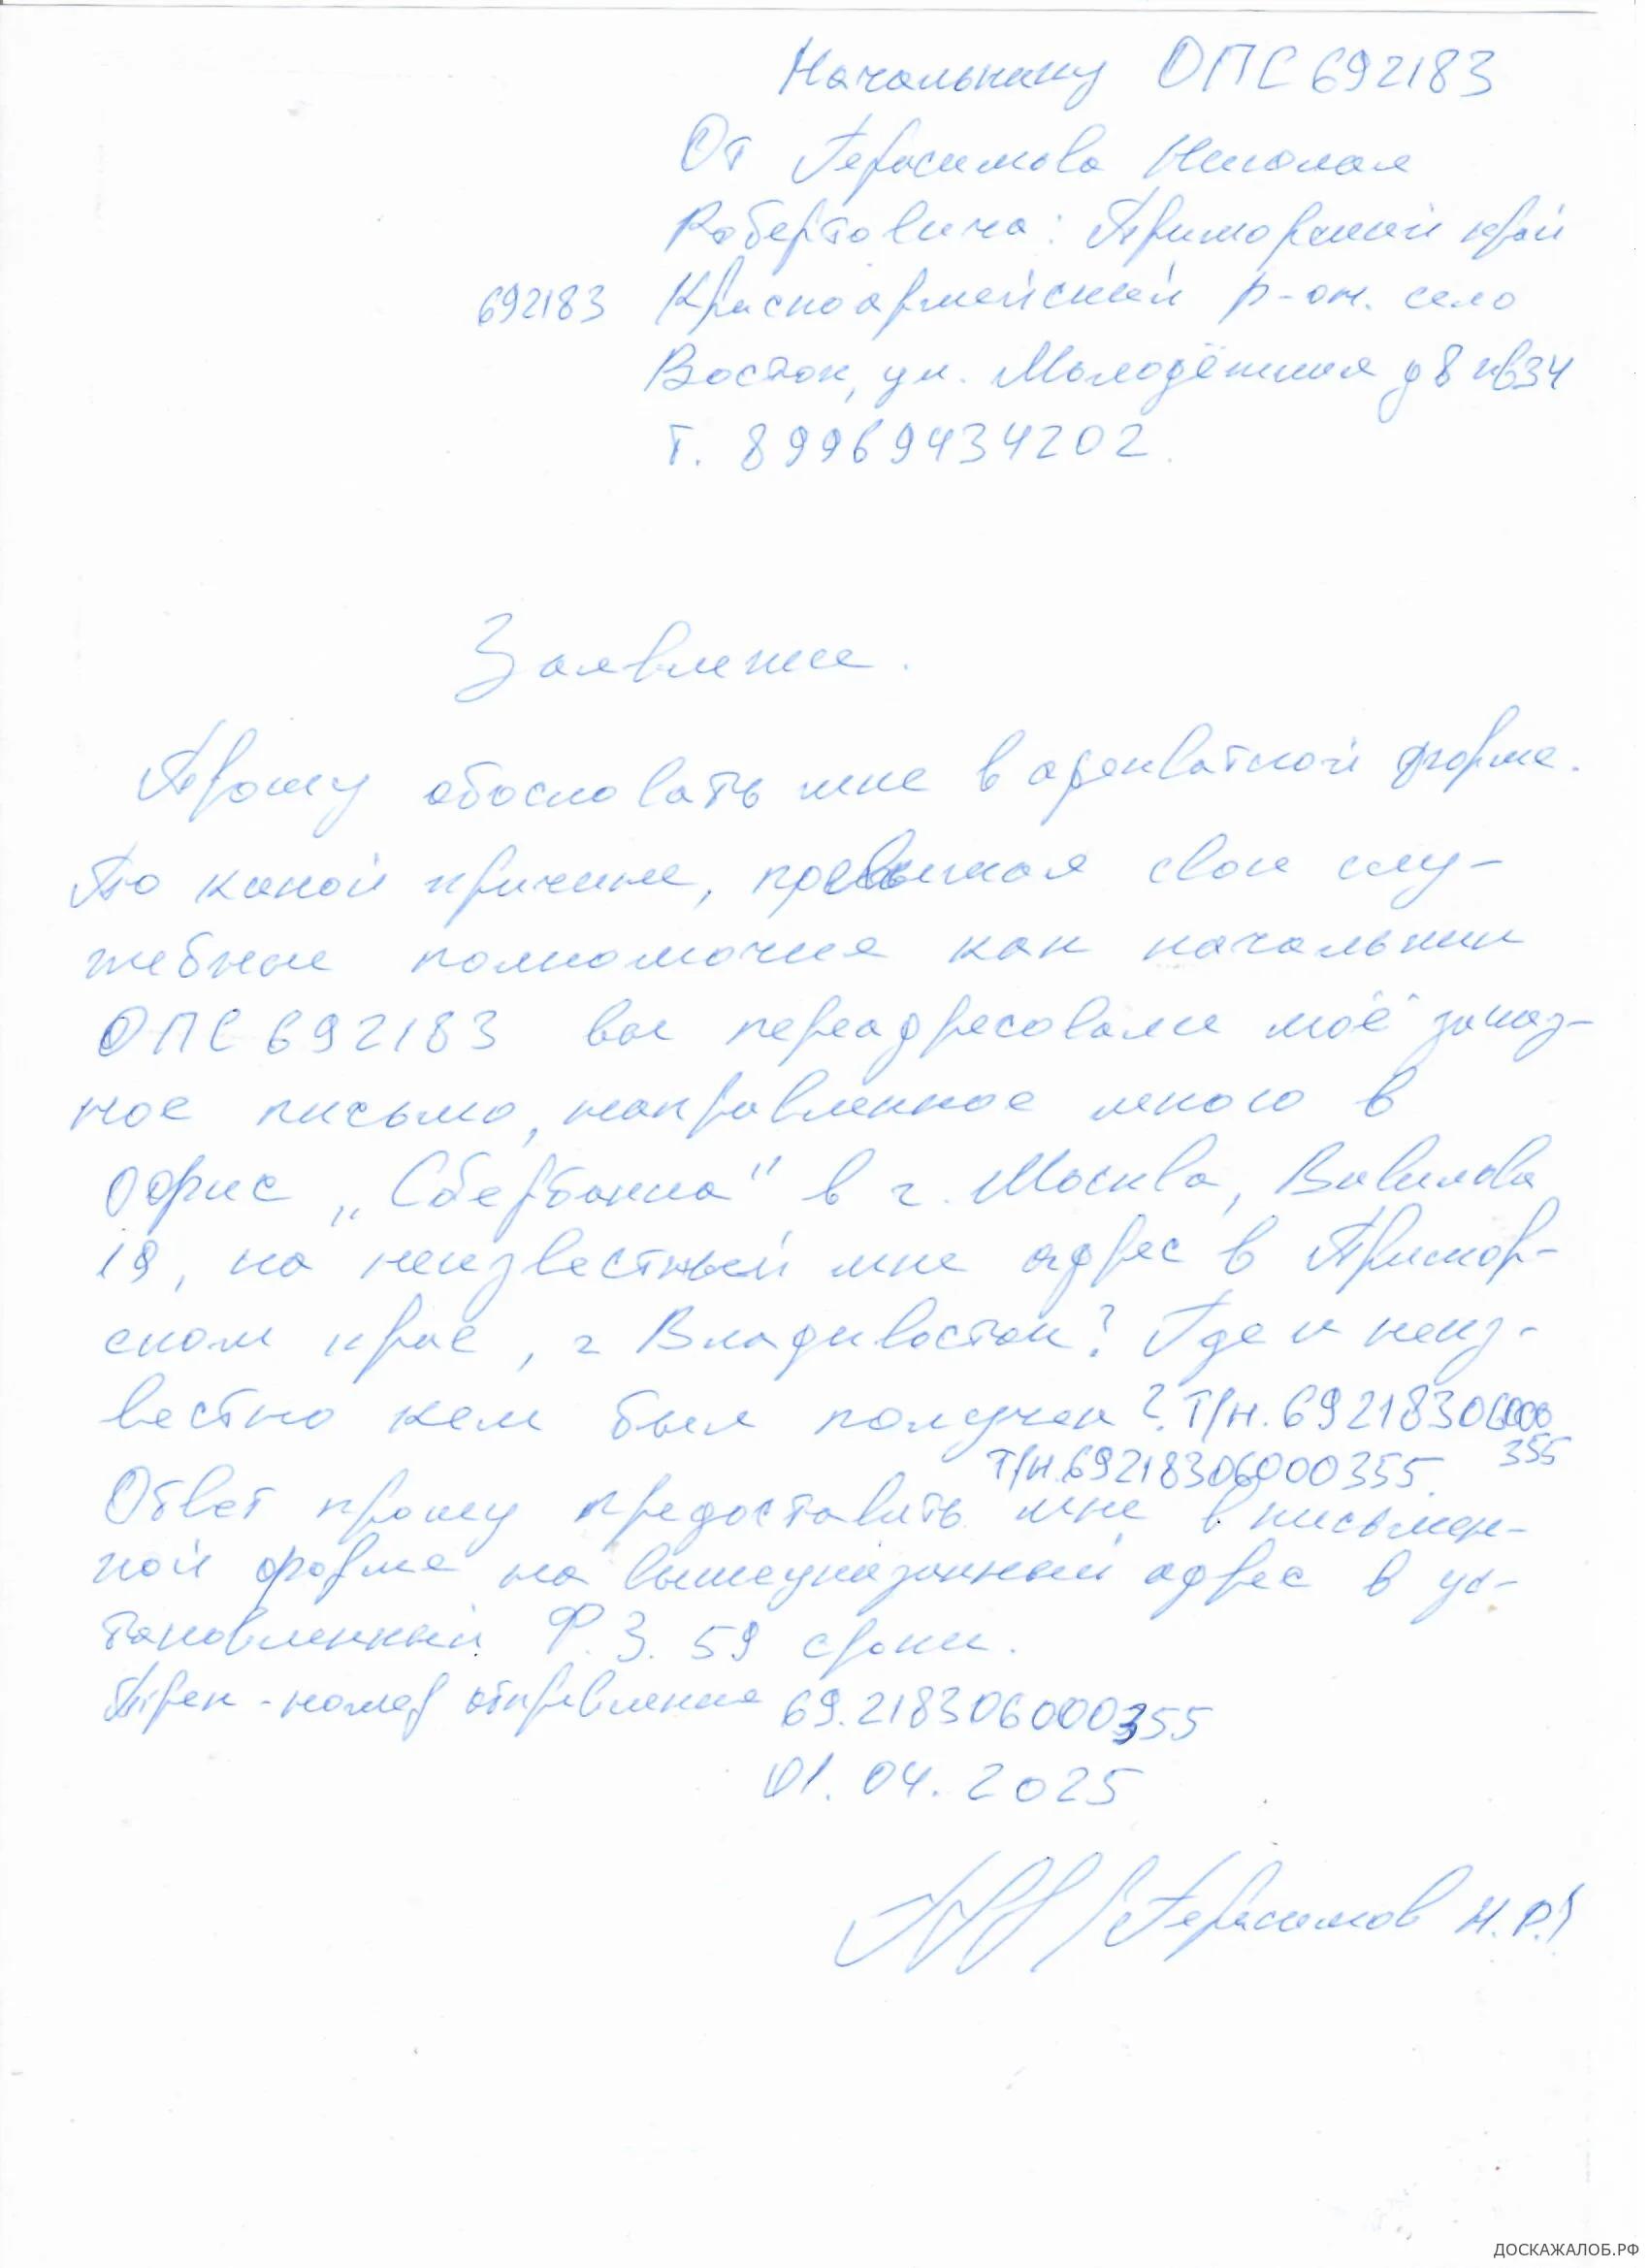 Начальнику ОПС 692183
От Герасимова Николая
Робертовича: Приморский край
692183 Красноармейский р-он. село
Восток, ул. Молодёжная д 8 кв34
Т. 89969434202.
Заявление.
Прошу обосновать мне в адекватной форме.
По какой причине, превышая свои слу-
жебные полномочия как начальник
ОПС 692183 вы переадресовали моё заказ-
ное письмо, направленное мною в
офис „Сбербанка" в г. Москва, Вавилова
19, на неизвестный мне адрес в Примор-
ском крае, г Владивосток? Где и неиз-
вестно кем был получен? Т/н. 69218306000
355
Т/н. 69218306000355.
Ответ прошу предоставить мне в письмен-
ной форме на вышеуказанный адрес в ус-
тановленный Ф.З. 59 сроки.
Трек-номер отправления 69.218306000355
01.04.2025
/Герасимов Н.Р./
ДОСКАЖАЛОБ.РФ